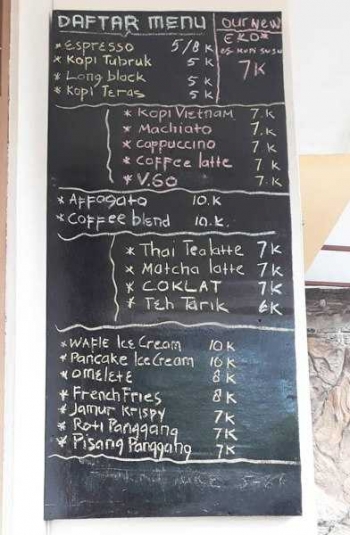 DAFTAR MENU
* Espresso 5/8 K
* Kopi Tubruk 5 K
* Long black 5 K
* Kopi Teras 5 K
OUR NEW
EKO*
ES KOPI SUSU
7K
* Kopi Vietnam 7.K
* Machiato 7.K
* cappuccino 7 K
* coffee latte 7 K
* V.60 7.K
* Affogato 10.K
* Coffee blend 10.K.
* Thai Tea latte 7K
* Matcha latte 7K
* COKLAT 7K
* Teh Tarik 6K
* WAFLE Ice Cream 10K
* Pancake Ice Cream 10K
* OMELETE 8K
* French Fries 8K
* Jamur Krispy 7K
* Roti Panggang 7K
* Pisang Panggang 7K